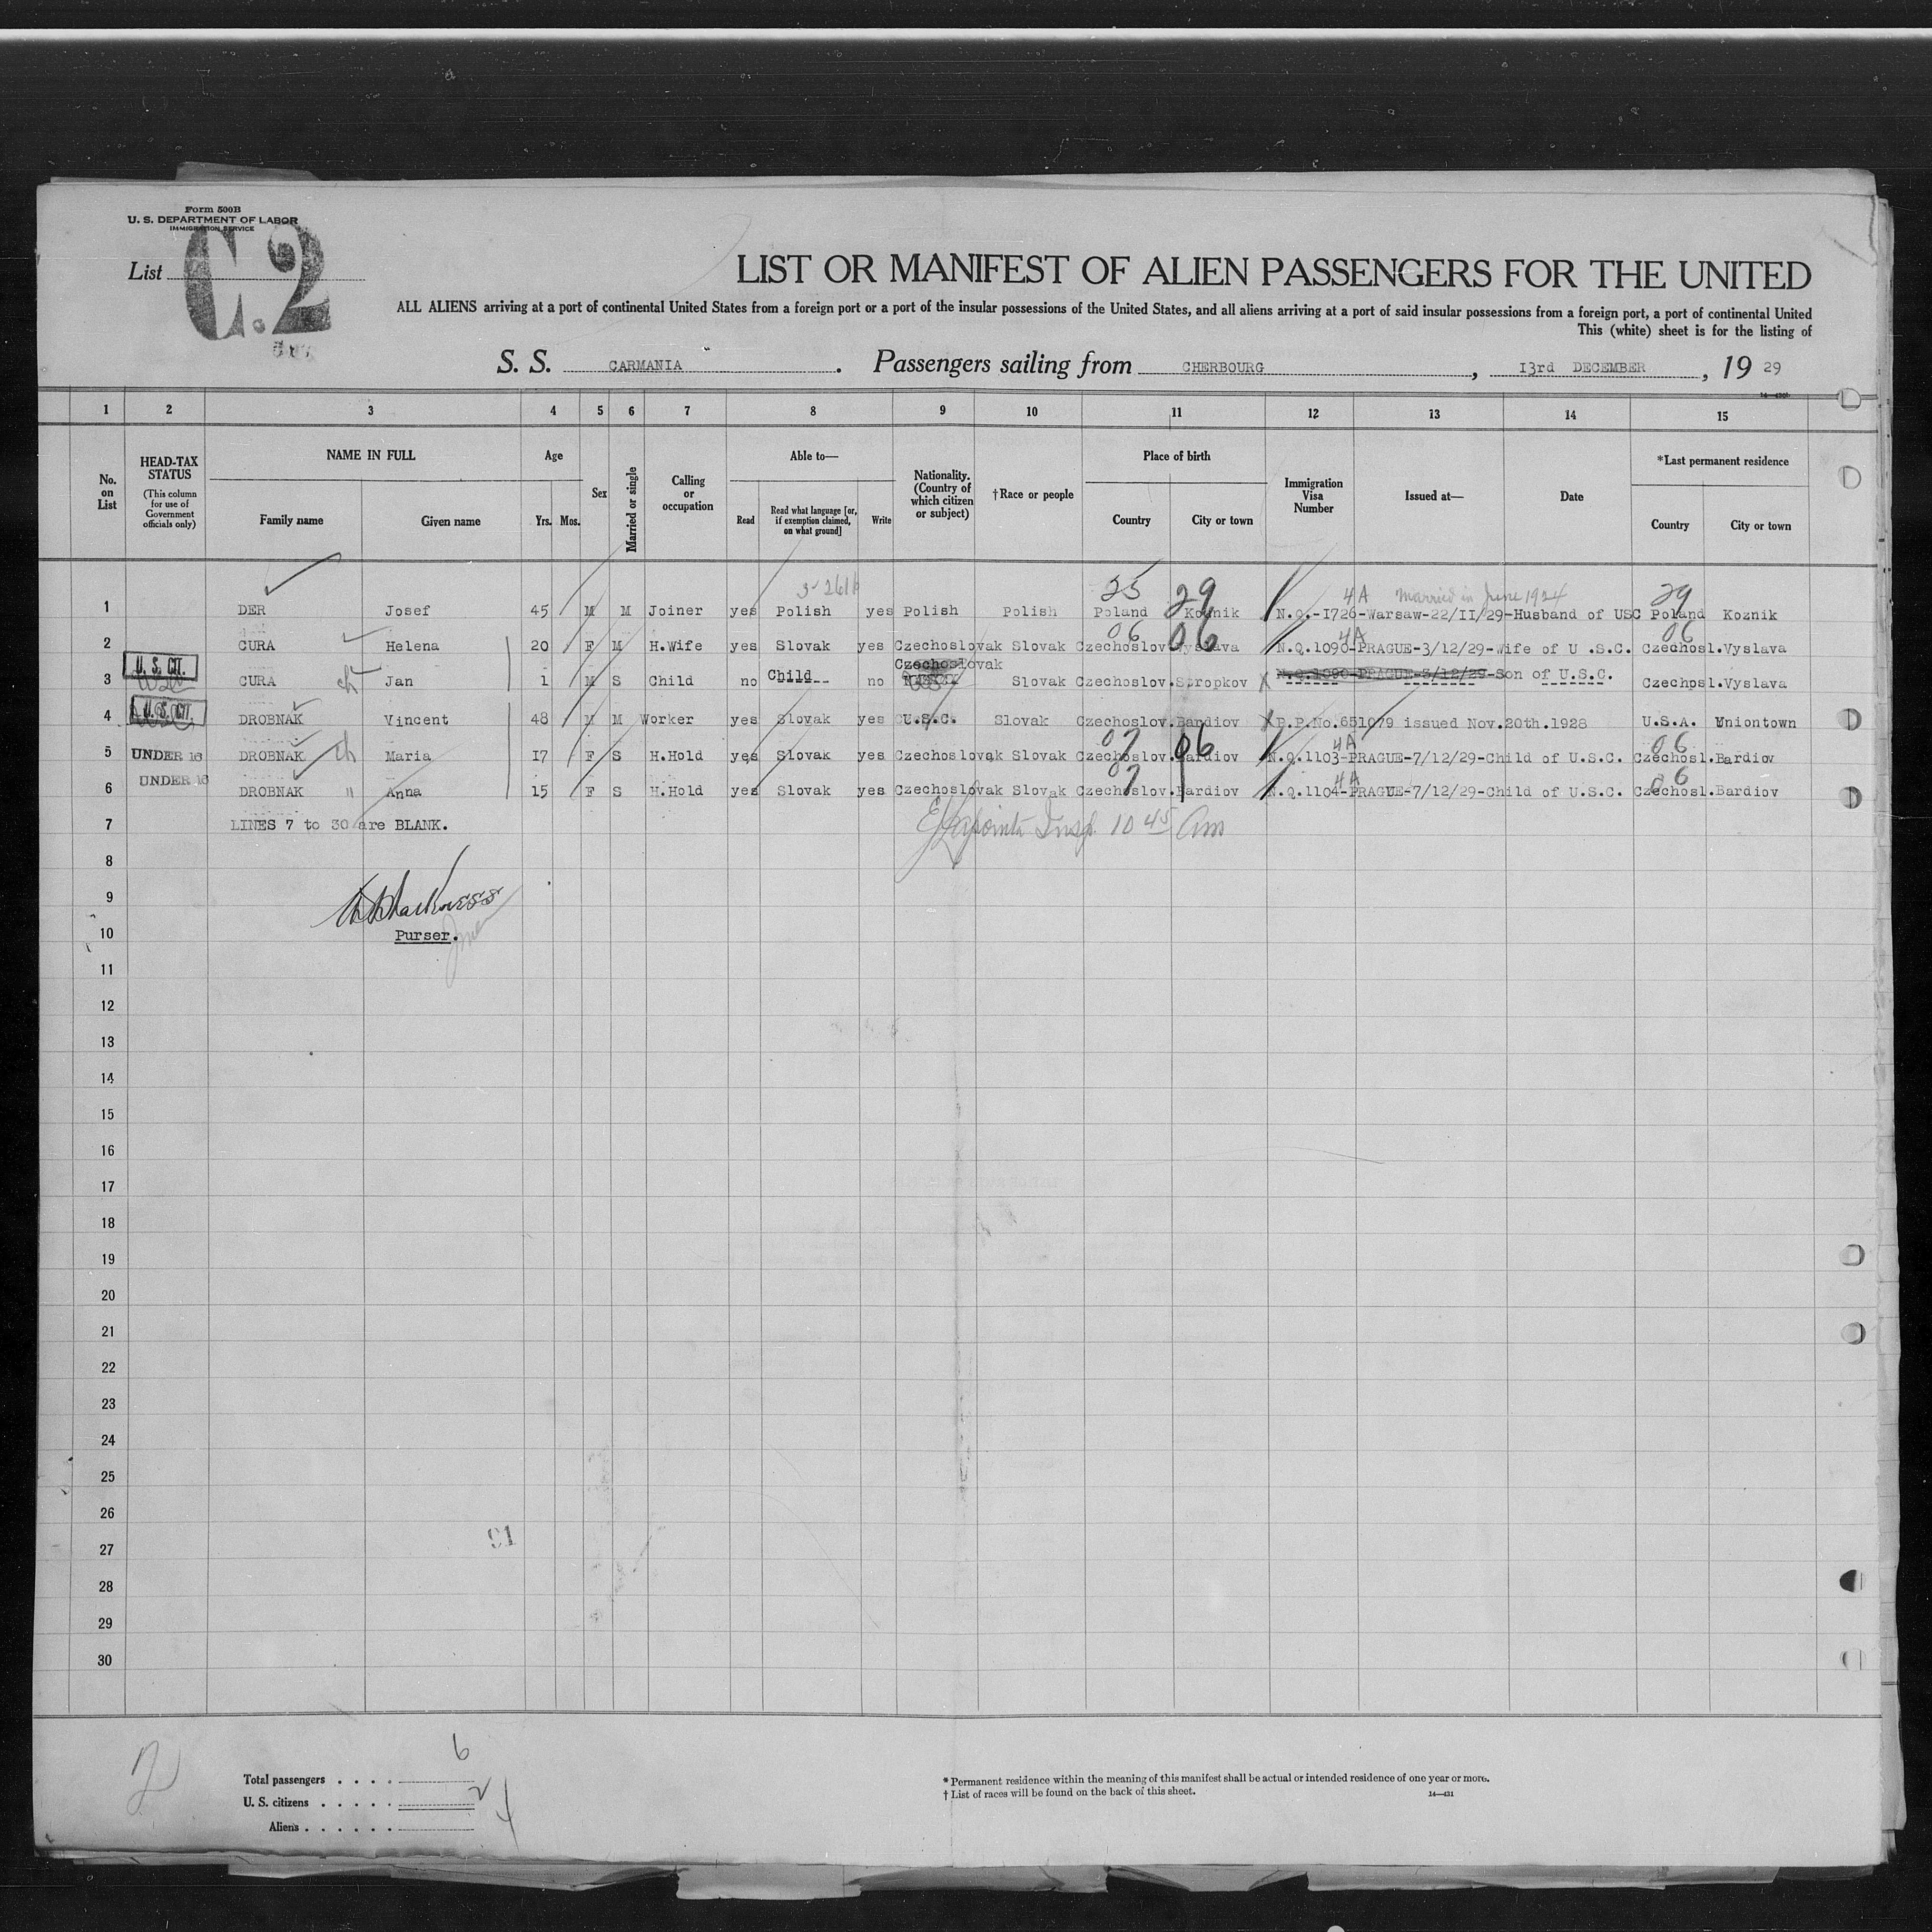 Form 500B
U. S. DEPARTMENT OF LABOR
IMMIGRATION SERVICE
List C.2
LIST OR MANIFEST OF ALIEN PASSENGERS FOR THE UNITED
ALL ALIENS arriving at a port of continental United States from a foreign port or a port of the insular possessions of the United States, and all aliens arriving at a port of said insular possessions from a foreign port, a port of continental United
This (white) sheet is for the listing of
S. S. CARMANIA. Passengers sailing from CHERBOURG, 13rd DECEMBER, 19 29
1 2 3 4 5 6 7 8 9 10 11 12 13 14 15
No. on List
HEAD-TAX STATUS (This column for use of Government officials only)
NAME IN FULL Family name Given name
Age Yrs. Mos.
Sex
Married or single
Calling or occupation
Able to— Read Read what language [or, if exemption claimed, on what ground] Write
Nationality. (Country of which citizen or subject)
†Race or people
Place of birth Country City or town
Immigration Visa Number
Issued at—
Date
*Last permanent residence Country City or town
25 29 4A Married in June 1924 29
1 DER Josef 45 M M Joiner yes Polish yes Polish Polish Poland Koznik N.Q.-1726-Warsaw-22/11/29-Husband of USC Poland Koznik
06 06 4A 06
2 CURA Helena 20 F M H.Wife yes Slovak yes Czechoslovak Slovak Czechoslov. Vyslava N.Q.1090-PRAGUE-3/12/29-Wife of U .S.C. Czechosl.Vyslava
U. S. CIT.
3 CURA ch Jan 1 M S Child no Child no Czechoslovak Slovak Czechoslov.Stropkov N.Q.1090-PRAGUE-3/12/29-Son of U.S.C. Czechosl.Vyslava
U. S. CIT.
4 DROBNAK Vincent 48 M M Worker yes Slovak yes U.S.C. Slovak Czechoslov.Bardiov P.P.No.651079 issued Nov.20th.1928 U.S.A. Uniontown
07 06 4A 06
5 UNDER 16 DROBNAK ch Maria 17 F S H.Hold yes Slovak yes Czechoslovak Slovak Czechoslov.Bardiov N.Q.1103-PRAGUE-7/12/29-Child of U.S.C. Czechosl.Bardiov
07 4A 06
6 UNDER 16 DROBNAK " Anna 15 F S H.Hold yes Slovak yes Czechoslovak Slovak Czechoslov.Bardiov N.Q.1104-PRAGUE-7/12/29-Child of U.S.C. Czechosl.Bardiov
7 LINES 7 to 30 are BLANK. Insp. 10 45 Am
8
9
10 Purser.
11
12
13
14
15
16
17
18
19
20
21
22
23
24
25
26
27
91
28
29
30
2
Total passengers . . . . 6
U. S. citizens . . . . . 2
Aliens . . . . . . 4
* Permanent residence within the meaning of this manifest shall be actual or intended residence of one year or more.
† List of races will be found on the back of this sheet.
14—431